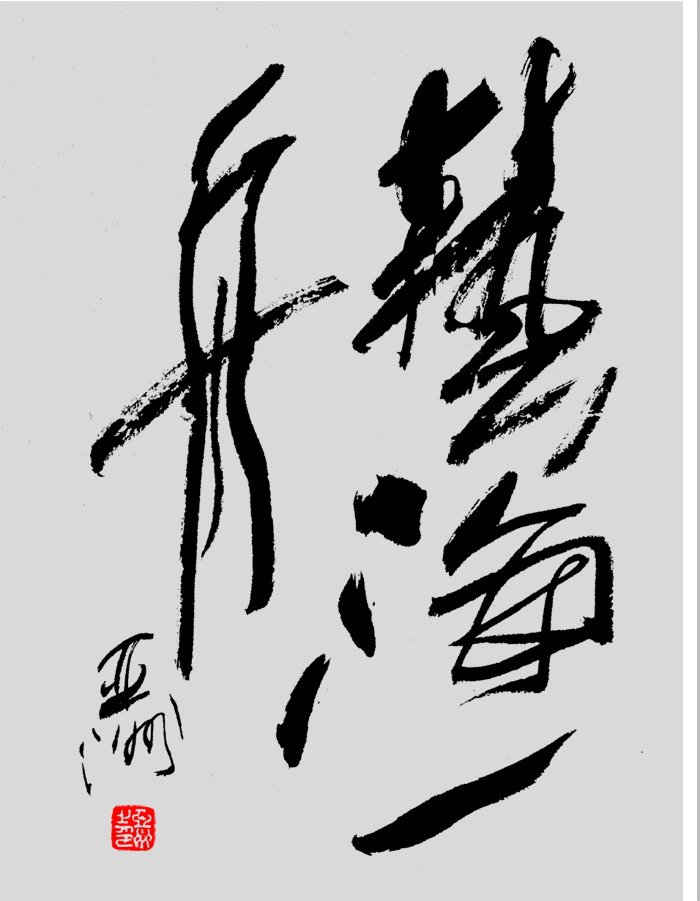 藝海一
舟
亚洲